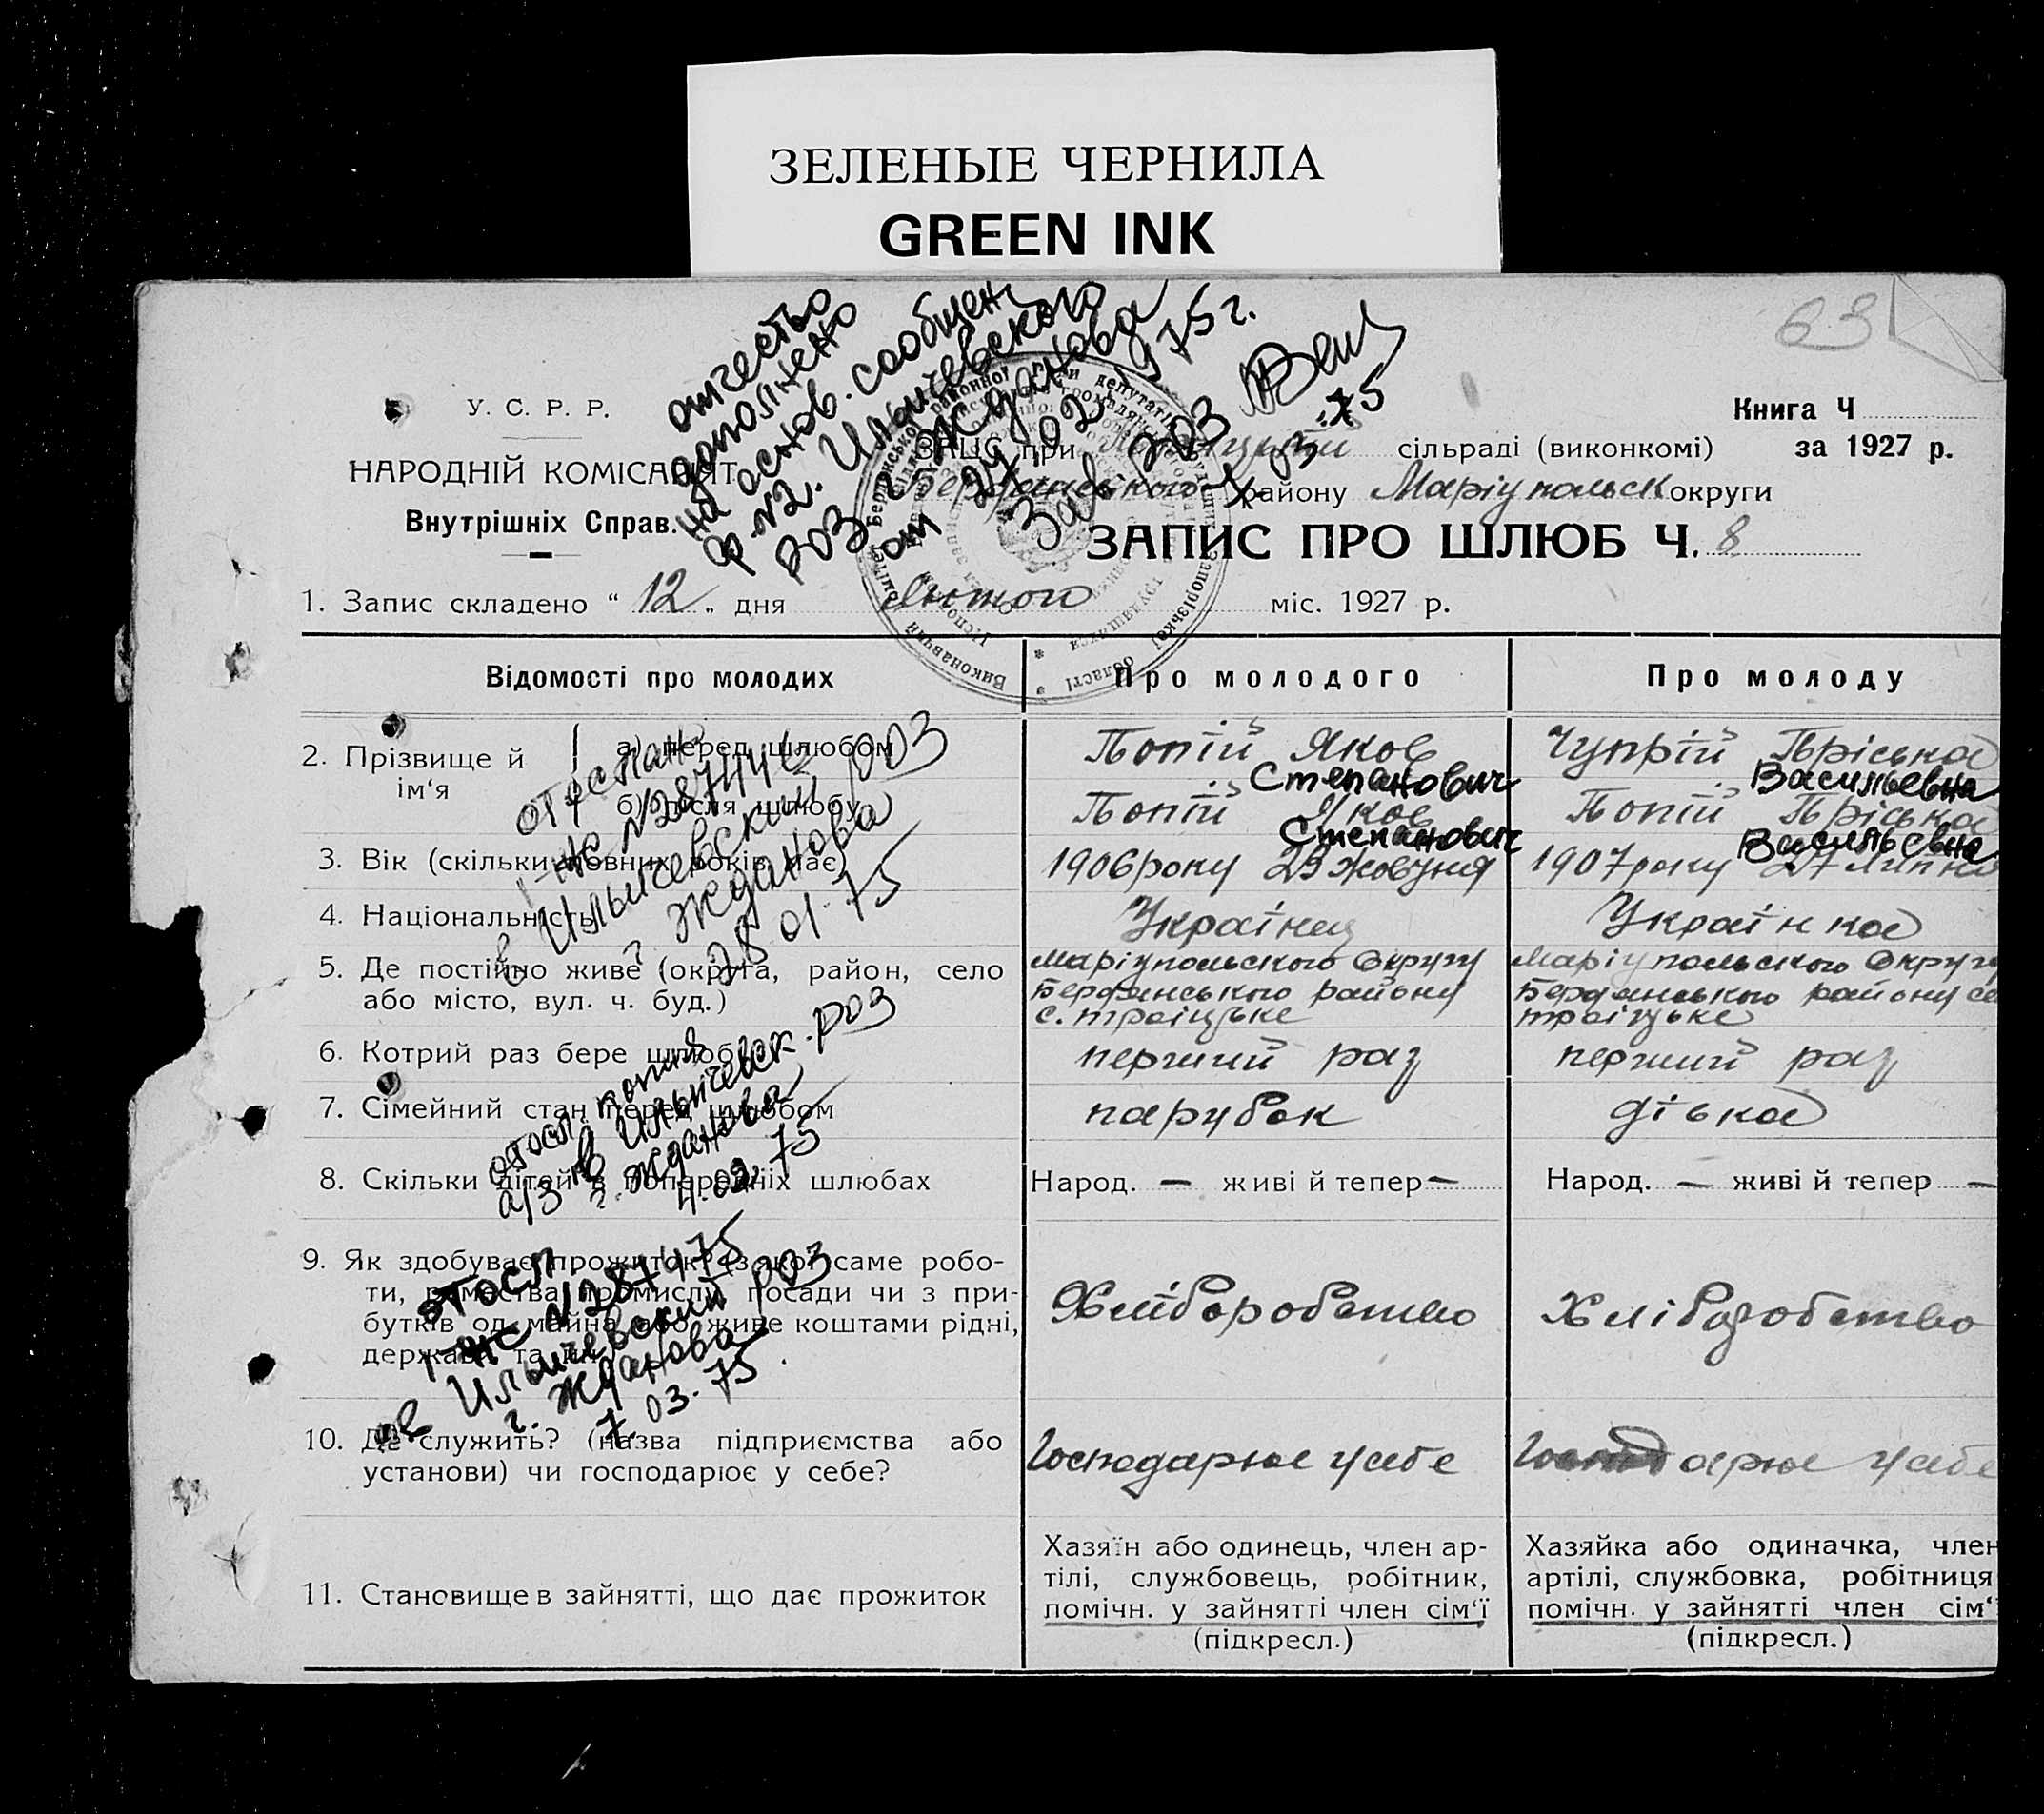 ЗЕЛЕНЫЕ ЧЕРНИЛА
GREEN INK
63
отчество
дополнено
на основ. сообщен
ф. №2. Ильичевского
РОЗ г. Жданова
от 24.02 1975 г.
Зав РОЗ
У. С. Р. Р.
НАРОДНІЙ КОМІСАРІЯТ
Внутрішніх Справ.
Книга Ч
ЗАЦС при сільраді (виконкомі) за 1927 р.
Бердянського району Маріупольск округи
ЗАПИС ПРО ШЛЮБ Ч. 8
1. Запис складено " 12 " дня Лютого міс. 1927 р.
Відомості про молодих
Про молодого
Про молоду
2. Прізвище й ім'я
а) перед шлюбом
Попій Яков
Степанович
Чупрій Пріська
Васильевна
б) після шлюбу
Попій Яков
Степанович
Попій Пріська
Васильевна
3. Вік (скільки повних років має)
1906 року 23 жовтня
1907 року 27 Липня
4. Національність
Українец
Українка
5. Де постійно живе (округа, район, село
або місто, вул. ч. буд.)
Маріупольского Округу
Бердянського району
с. троіцьке
Маріупольского Округу
Бердянського району се
троіцьке
6. Котрий раз бере шлюб
перший раз
перший раз
7. Сімейний стан перед шлюбом
парубок
дівка
8. Скільки дітей в попередніх шлюбах
Народ. — живі й тепер —
Народ. — живі й тепер —
9. Як здобуває прожиток? (з якої саме робо-
ти, ремества, промислу, посади чи з при-
бутків од майна або живе коштами рідні,
держави та ин.)
Хліборобство
Хліборобство
10. Де служить? (назва підприємства або
установи) чи господарює у себе?
Господарює у себе
Господарює у себе
11. Становище в зайнятті, що дає прожиток
Хазяїн або одинець, член ар-
тілі, службовець, робітник,
помічн. у зайнятті член сім'ї
(підкресл.)
Хазяйка або одиначка, член
артілі, службовка, робітниця
помічн. у зайнятті член сім'ї
(підкресл.)
отослан
I-ЖС №287446
в Ильичевский РОЗ
г. Жданова
28 01.75
отосл. копия
а/з в Ильичевск. РОЗ
г. Жданова
4.02.75
отосл.
I-ЖС №287475
в Ильичевский РОЗ
г. Жданова
7.03.75